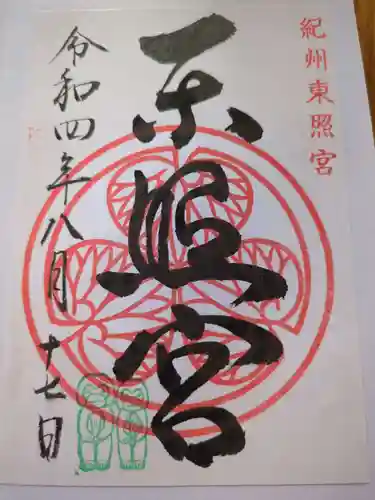 紀州東照宮
東照宮
令和四年八月十七日